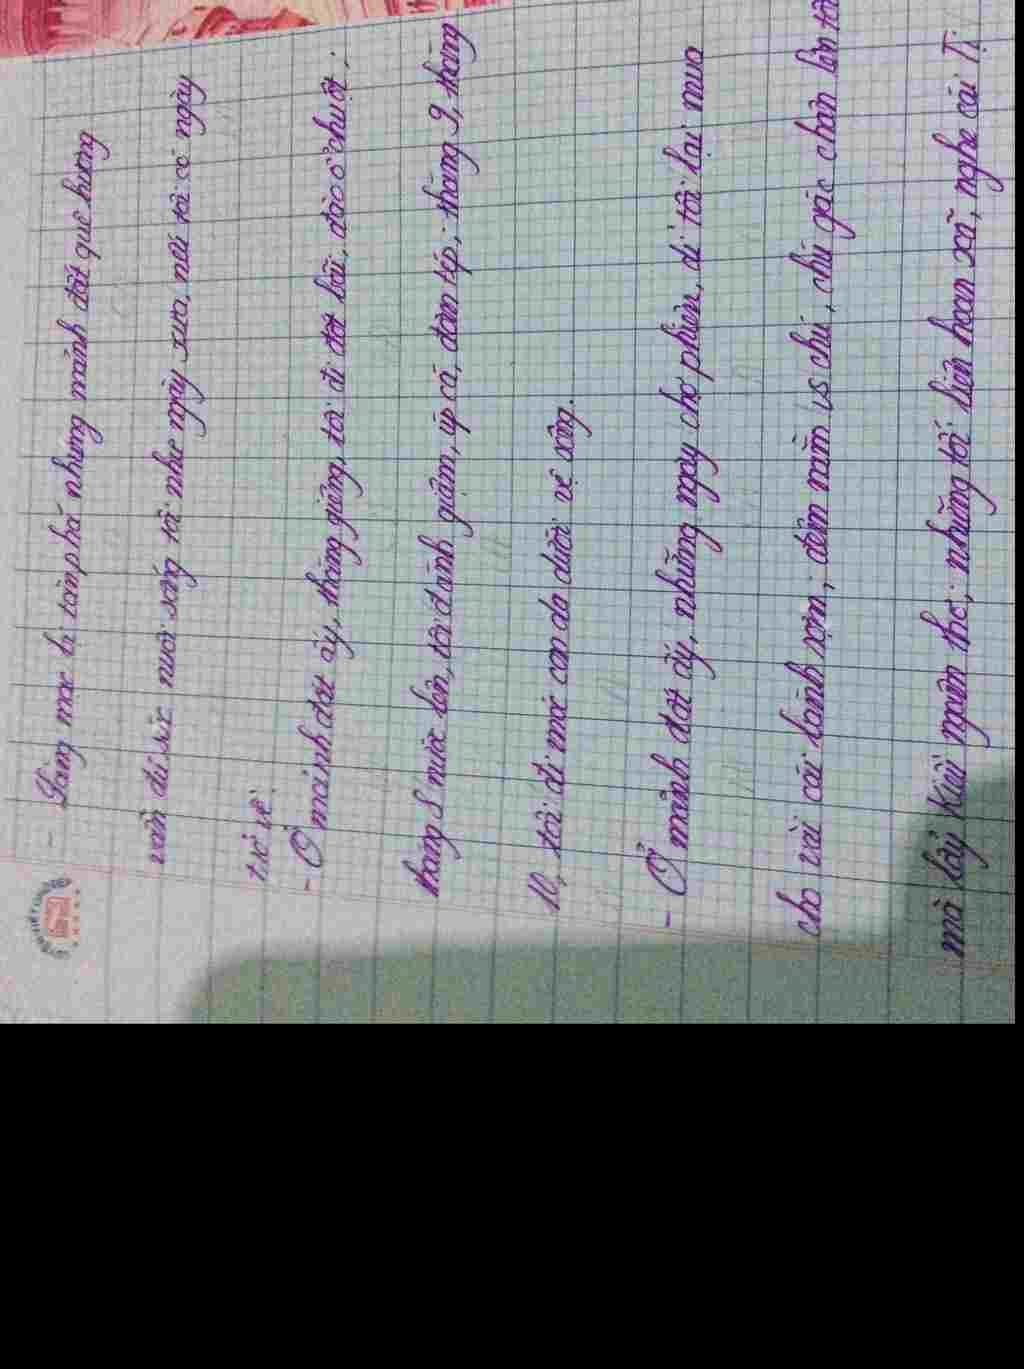 - Làng mạc bị tàn phá nhưng mảnh đất quê hương
vẫn đủ sức nuôi sống tôi như ngày xưa, nếu tôi có ngày
trở về.
- Ở mảnh đất ấy, tháng giêng, tôi đi đốt bãi, đào ổ chuột;
tháng 8 nước lên, tôi đánh giậm, úp cá, đơm tép; tháng 9, tháng
10, tôi đi móc con da dưới vệ sông.
- Ở mảnh đất ấy, những ngày chợ phiên, dì tôi lại mua
cho vài cái bánh rợm; đêm nằm vs chú, chú gác chân lên tôi
mà lẩy Kiều ngâm thơ; những tối liên hoan xã, nghe cái Tị